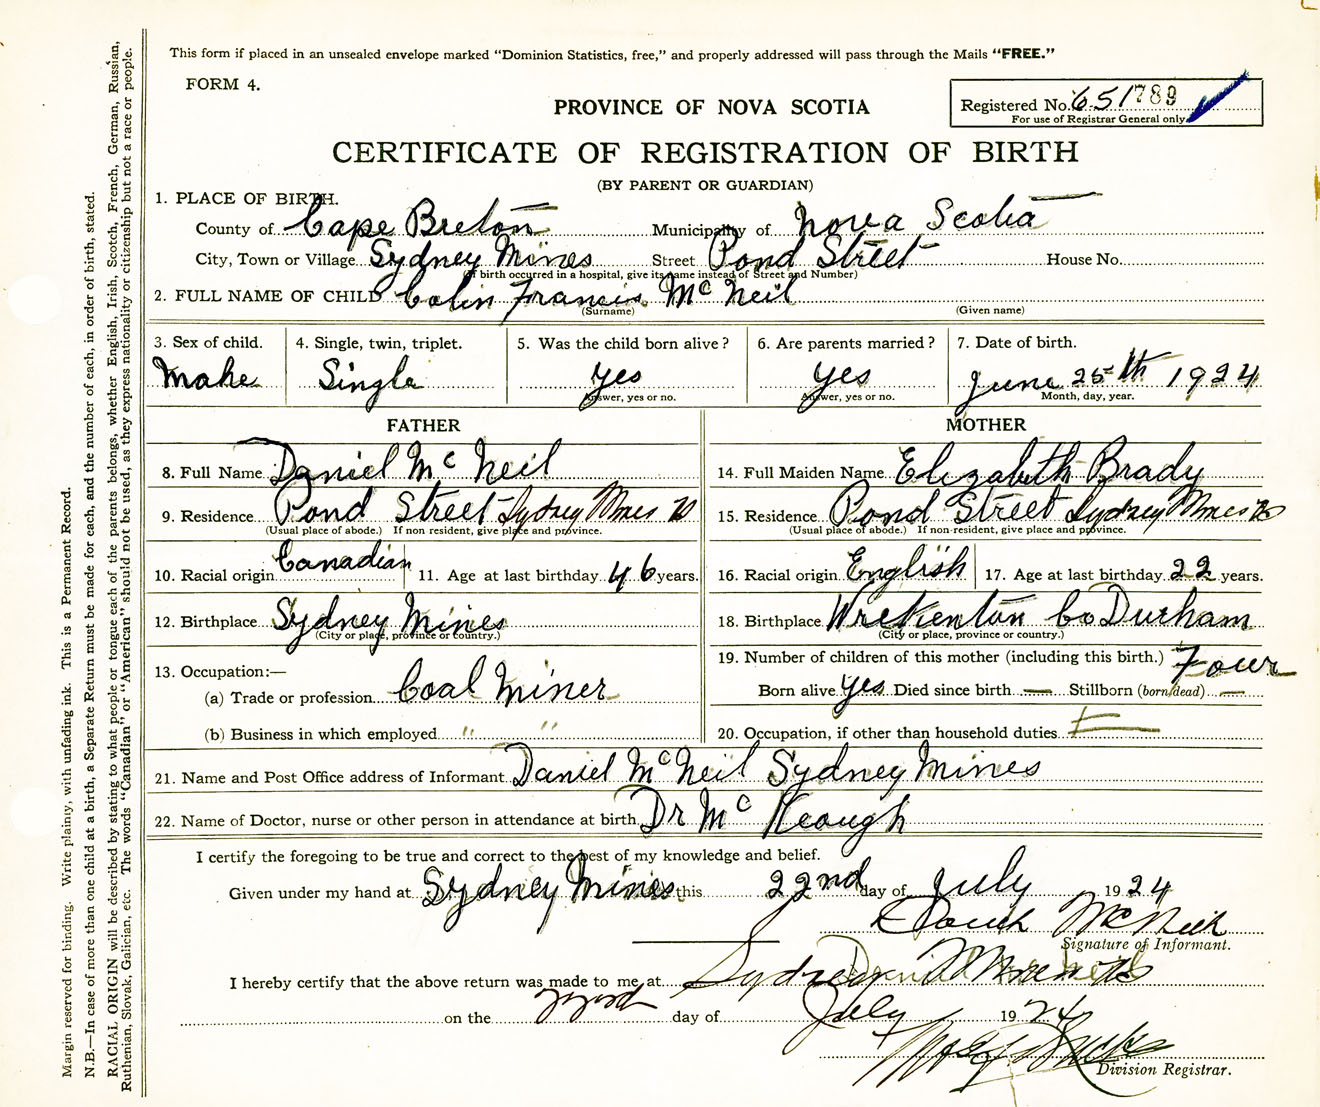 This form if placed in an unsealed envelope marked “Dominion Statistics, free,” and properly addressed will pass through the Mails “FREE.”
FORM 4.
PROVINCE OF NOVA SCOTIA
Registered No. 651789
For use of Registrar General only
CERTIFICATE OF REGISTRATION OF BIRTH
(BY PARENT OR GUARDIAN)
1. PLACE OF BIRTH.
County of Cape Breton Municipality of Nova Scotia
City, Town or Village Sydney Mines Street Pond Street House No.
(If birth occurred in a hospital, give its name instead of Street and Number)
2. FULL NAME OF CHILD Colin Francis Mc Neil
(Surname) (Given name)
3. Sex of child. 4. Single, twin, triplet. 5. Was the child born alive? 6. Are parents married? 7. Date of birth.
Make Single yes yes June 25th 1924
Answer, yes or no. Answer, yes or no. Month, day, year.
FATHER MOTHER
8. Full Name Daniel Mc Neil 14. Full Maiden Name Elizabeth Brady
9. Residence Pond Street Sydney Mines 15. Residence Pond Street Sydney Mines
(Usual place of abode.) If non resident, give place and province. (Usual place of abode.) If non-resident, give place and province.
10. Racial origin Canadian 11. Age at last birthday 46 years. 16. Racial origin English 17. Age at last birthday 22 years.
12. Birthplace Sydney Mines 18. Birthplace Wrekenton Co Durham
(City or place, province or country.) (City or place, province or country.)
13. Occupation:— 19. Number of children of this mother (including this birth.) Four
(a) Trade or profession Coal Miner Born alive yes Died since birth — Stillborn (born dead) —
(b) Business in which employed " " 20. Occupation, if other than household duties
21. Name and Post Office address of Informant Daniel McNeil Sydney Mines
22. Name of Doctor, nurse or other person in attendance at birth Dr Mc Keough
I certify the foregoing to be true and correct to the best of my knowledge and belief.
Given under my hand at Sydney Mines this 22nd day of July 1924
Signature of Informant.
I hereby certify that the above return was made to me at Sydney Mines
on the day of July 1924
Division Registrar.
Margin reserved for binding. Write plainly, with unfading ink. This is a Permanent Record.
N.B.—In case of more than one child at a birth, a Separate Return must be made for each, and the number of each, in order of birth, stated.
RACIAL ORIGIN will be described by stating to what people or tongue each of the parents belongs, whether English, Irish, Scotch, French, German, Russian,
Ruthenian, Slovak, Galician, etc. The words “Canadian” or “American” should not be used, as they express nationality or citizenship but not a race or people.